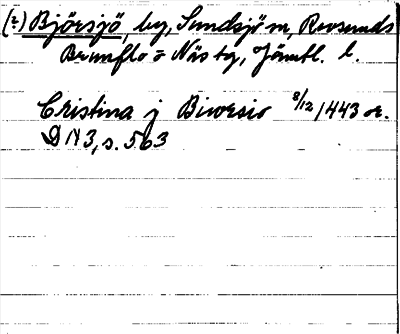 (?) Björsjö, by, Sundsjö sn, Revsunds
Brunflo o Näs tg, Jämtl. l.
Cristina j Biorsio 8/12 1443 or.
DN 3, s. 563